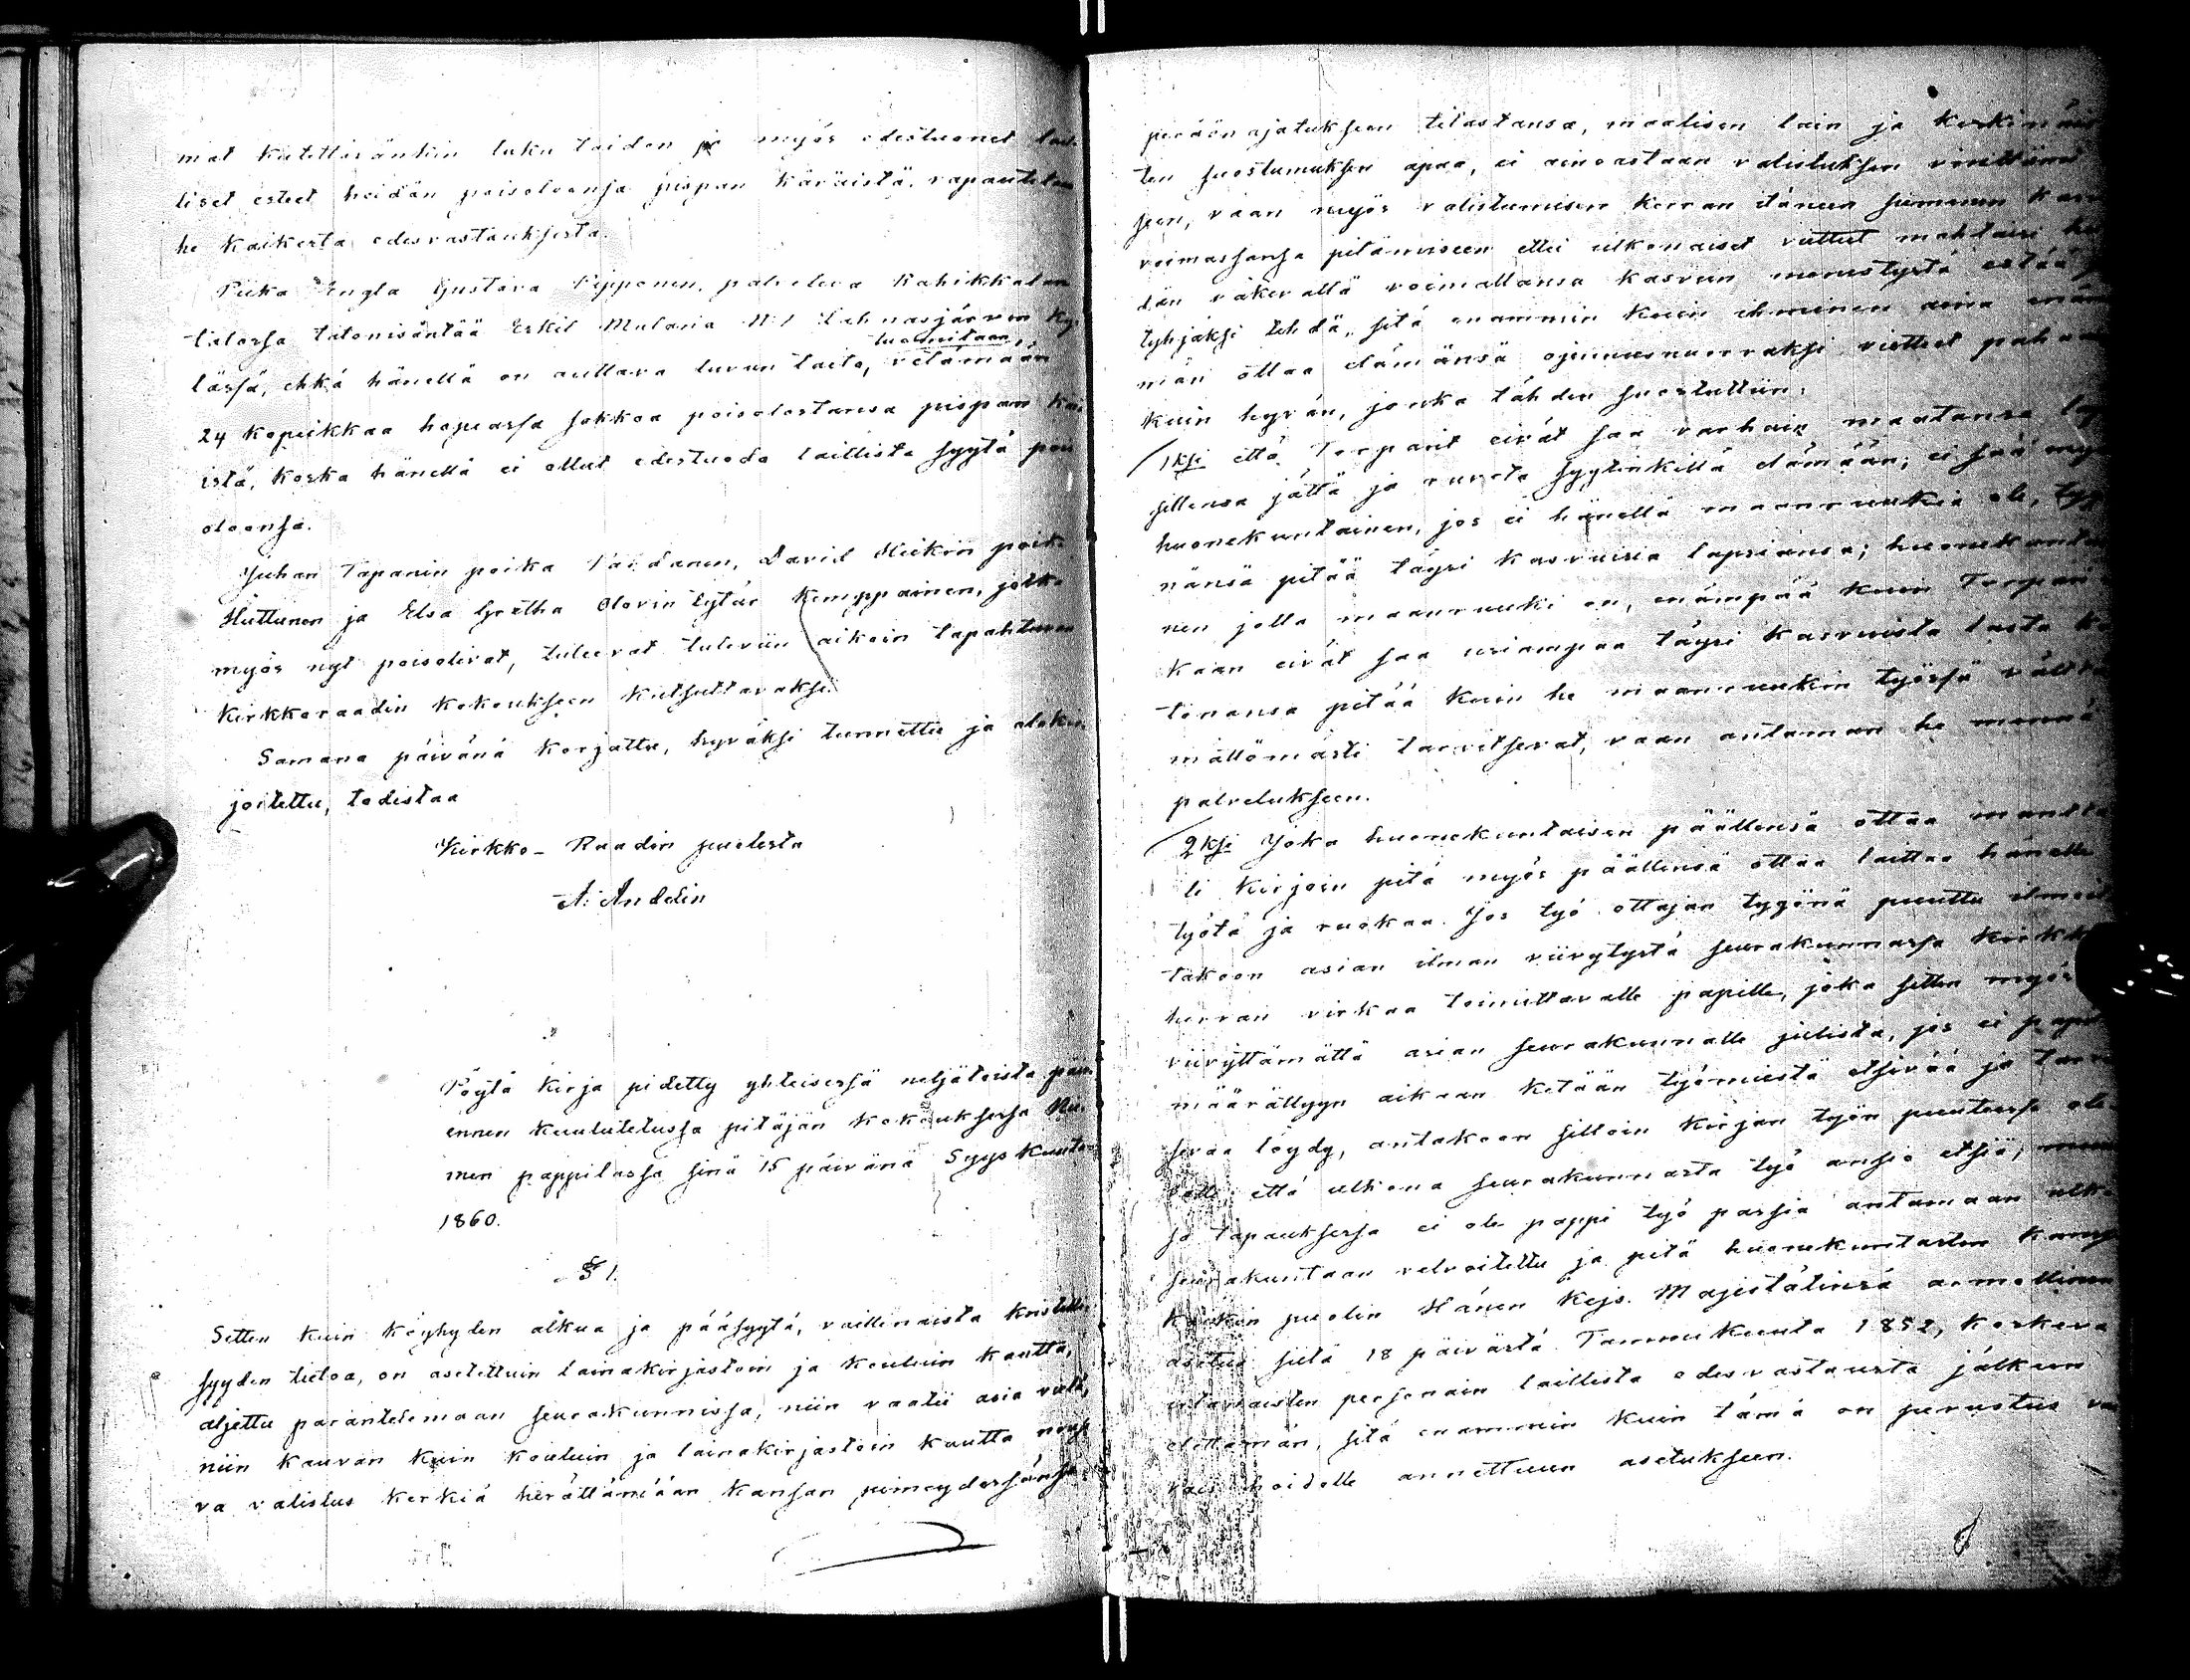 mat kutettäränkin luku taidon ja myös edestuonet lail-
liset esteet heidän poisoloonsa pispan käräistä. vapautetan
he kaikesta edesvastauksesta.
Piika Engla Gustava Pipponen, palveleva Rahikkalan
talossa talonisäntää Erkil Mularia N:1 Lahnasjärven ky-
tuomitaan
lässä, ehkä hänellä on auttava luvun taito, vetämään
24 kopeikkaa hopeassa sakkoa poisolostansa pispan kär-
istä, koska hänellä ei ollut edestuoda laillista syytä pois
oloonsa.
Juhan Tapanin poika Taidanen, David Heikin poik.
Huttunen ja Elsa Gretha Olovin tytär Kemppainen, jotka
myös nyt poisolivat, tulevat tuleviin aikoin tapahtuvan
Kirkkoraadin kokoukseen kutsuttavaksi.
Samana päivänä korjattu, hyväksi tunnettu ja alekir-
joitettu, todistaa
Kirkko-Raadin puolesta
A: Andelin
Pöytä kirja pidetty yhteisessä neljätoista päiv.
ennen kuulutetussa pitäjän kokouksessa
men pappilassa sinä 15 päivänä Syys kuuta
1860.
§ 1.
Sitten kuin köyhyden alkua ja pääsyytä, vaillinaista kristilli-
syyden tietoa, on asetettuin lainakirjastoin ja kouluin kautta,
aljettu parantelemaan seurakunnissa, niin vaatii asia vielä,
niin kauvan kuin kouluin ja lainakirjastoin kautta
va valistus kerkiä herättämään kansan pimeydessänsä
perään ajatukseen tilastansa, maalisen lain ja keskinäis-
ten suostumuksen apaa, ei ainoastaan valistuksen
seen, vaan myös valistumisen kerran itäneen siemenen
voimassansa pitämiseen ettei ulkonaiset vietteet mahtaisi
dän väkevällä voimallansa kasvun menestystä estää
tyhjäksi tehdä, sitä enammin kuin ihminen aina
män ottaa elämänsä ojennusnuoraksi viettet pahaan
kuin hyvän, jonka tähden suostuttiin:
1ksi että Torparit eivät saa varhain maatansa
sillensa jättä ja ruveta syytinkillä elämään; ei saa
huonekuntainen, jos ei hänellä maanruukia ole,
nänsä pitää täysi kasvuisia lapsiansa; huonekuntai-
nen jolla maanruuki on, enämpää kuin Torpari
kaan eivät saa usiampaa täysi kasvuista lasta
tonansa pitää kuin he maanruukin työssä vältta-
mättömästi tarvitsevat, vaan antaman he mennä
palvelukseen.
2ksi Joka huonekuntaisen päällensä ottaa mantta-
li kirjoin pitä myös päällensä ottaa laittaa hänelle
työtä ja ruokaa. Jos työ ottajan työnä puuttu ilmoit-
takoon asian ilman viivytystä seurakunnassa kirkko
herran virkaa toimittavalle papille, joka sitten myös
viivyttämättä asian seurakunnalle julista, jos ei
määrättyyn aikaan ketään työmiestä etsivää ja tarvi-
sevaa löydy, antakoon silloin kirjan työn puuteessa ole-
valle että ulkona seurakunnasta työ ansio etsiä,
sä tapauksessa ei ole pappi työ passia antamaan
seurakuntaan velvoitettu ja pitä huonekuntasten
kuokin puolin Hänen Kejs. Majestätinsä aomollinen
asetus siitä 18 päivästä Tammikuuta 1852, koskeva
persoonain laillista edesvastausta jälkeen
elettämän, sitä enammin kuin tämä on perustus
heidelle annettuun asetukseen.